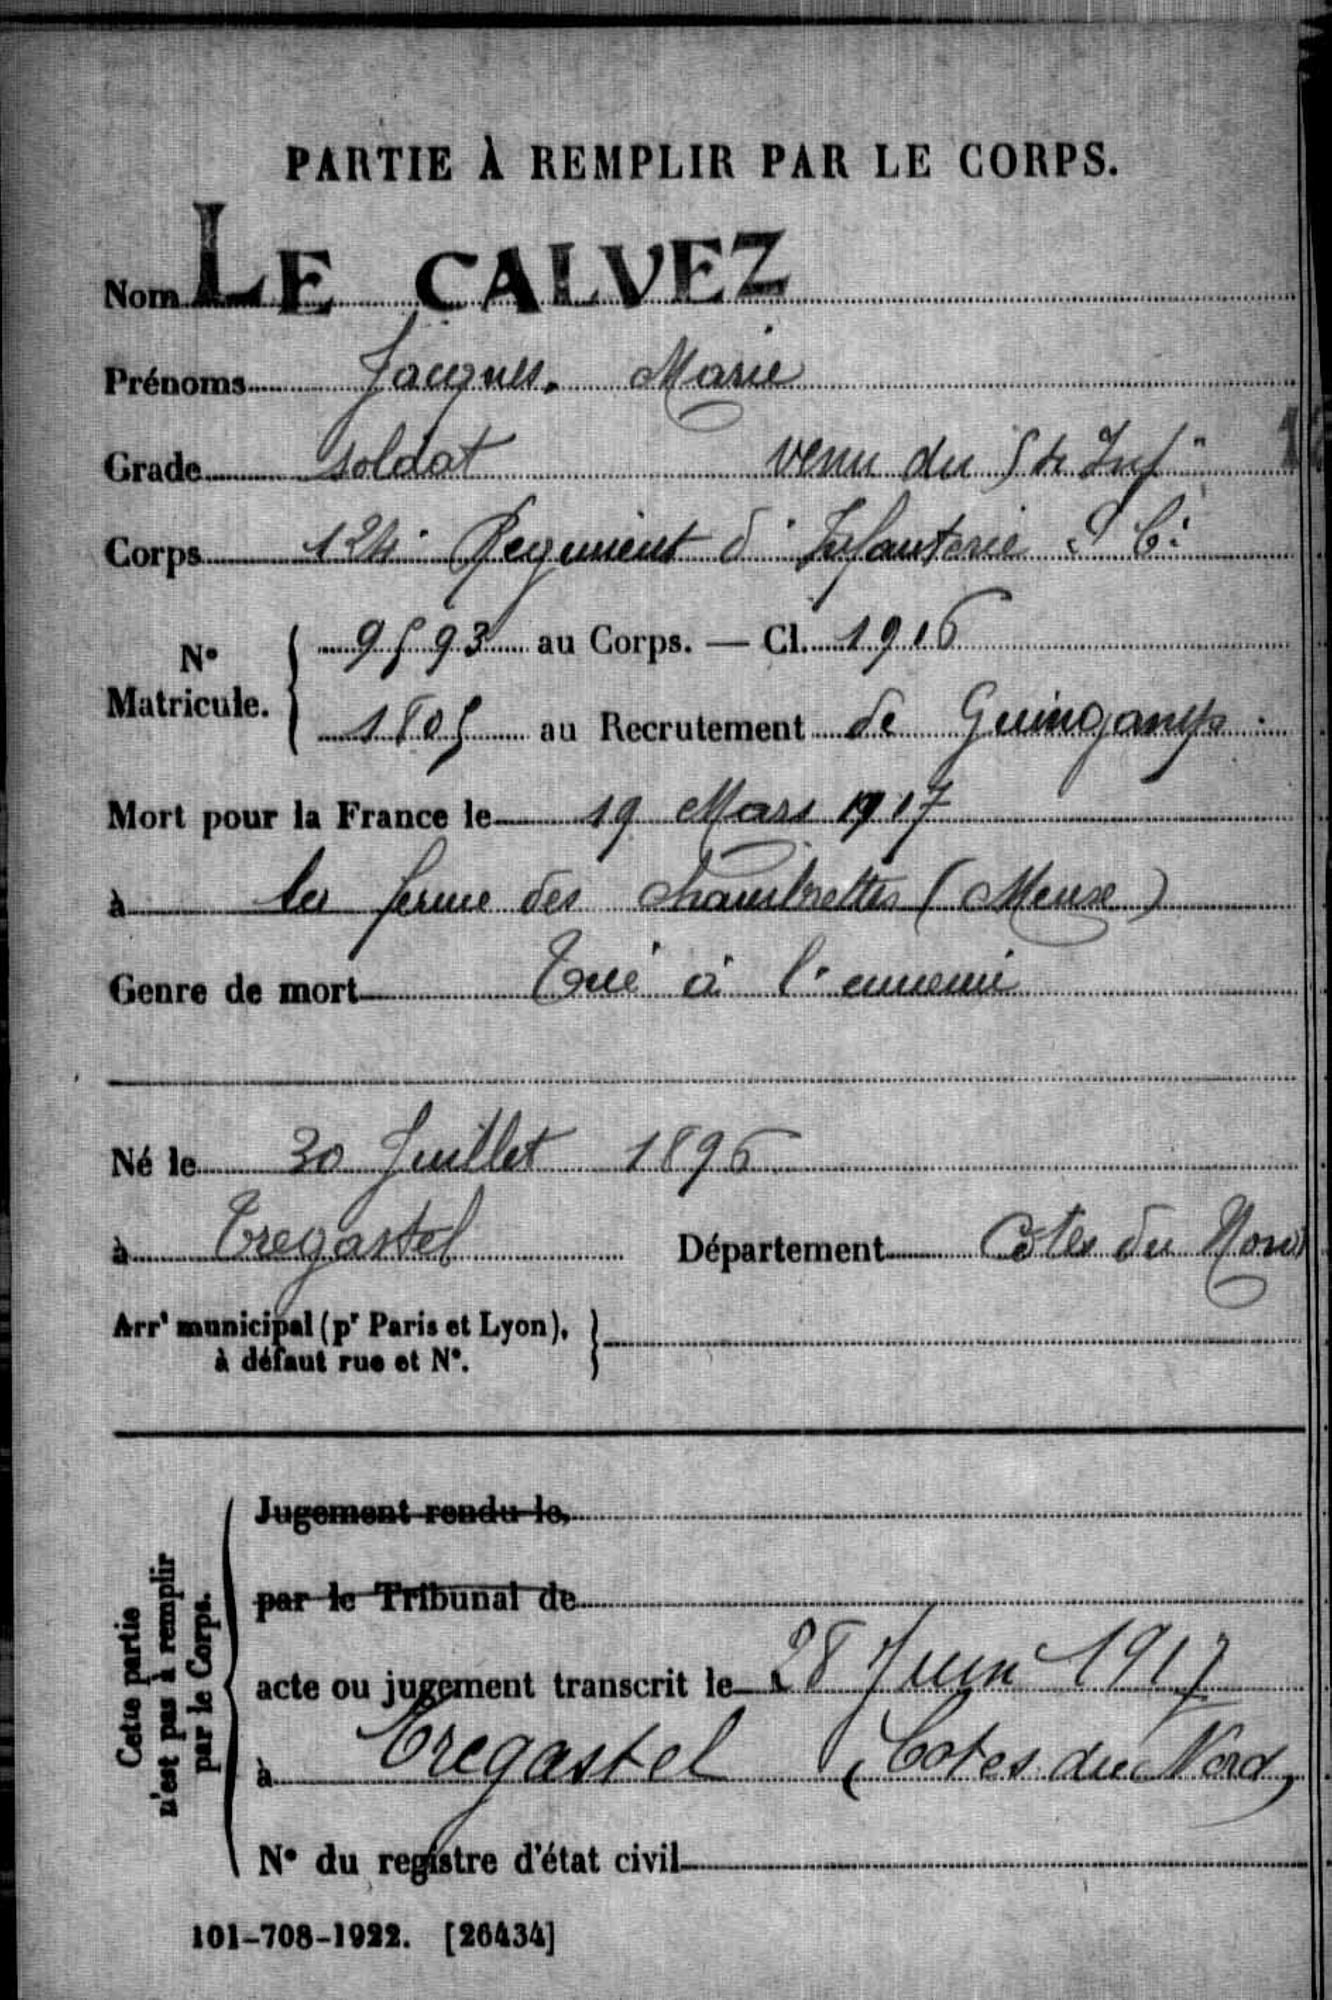 PARTIE À REMPLIR PAR LE CORPS.
Nom LE CALVEZ
Prénoms Jacques, Marie
Grade Soldat venu du 54 Inf
Corps 124 Regiment d'Infanterie
N° Matricule. 9593 au Corps. — Cl. 1916
1805 au Recrutement de Guingamp
Mort pour la France le 19 Mars 1917
à la ferme des Chambrettes (Meuse)
Genre de mort Tué à l'ennemi
Né le 30 Juillet 1896
à Tregastel Département Côtes du Nord
Arrt municipal (pr Paris et Lyon),
à défaut rue et N°.
Cette partie
n'est pas à remplir
par le Corps.
Jugement rendu le
par le Tribunal de
acte ou jugement transcrit le 28 Juin 1917
à Tregastel (Cotes du Nord)
N° du registre d'état civil
101-708-1922. [26434]